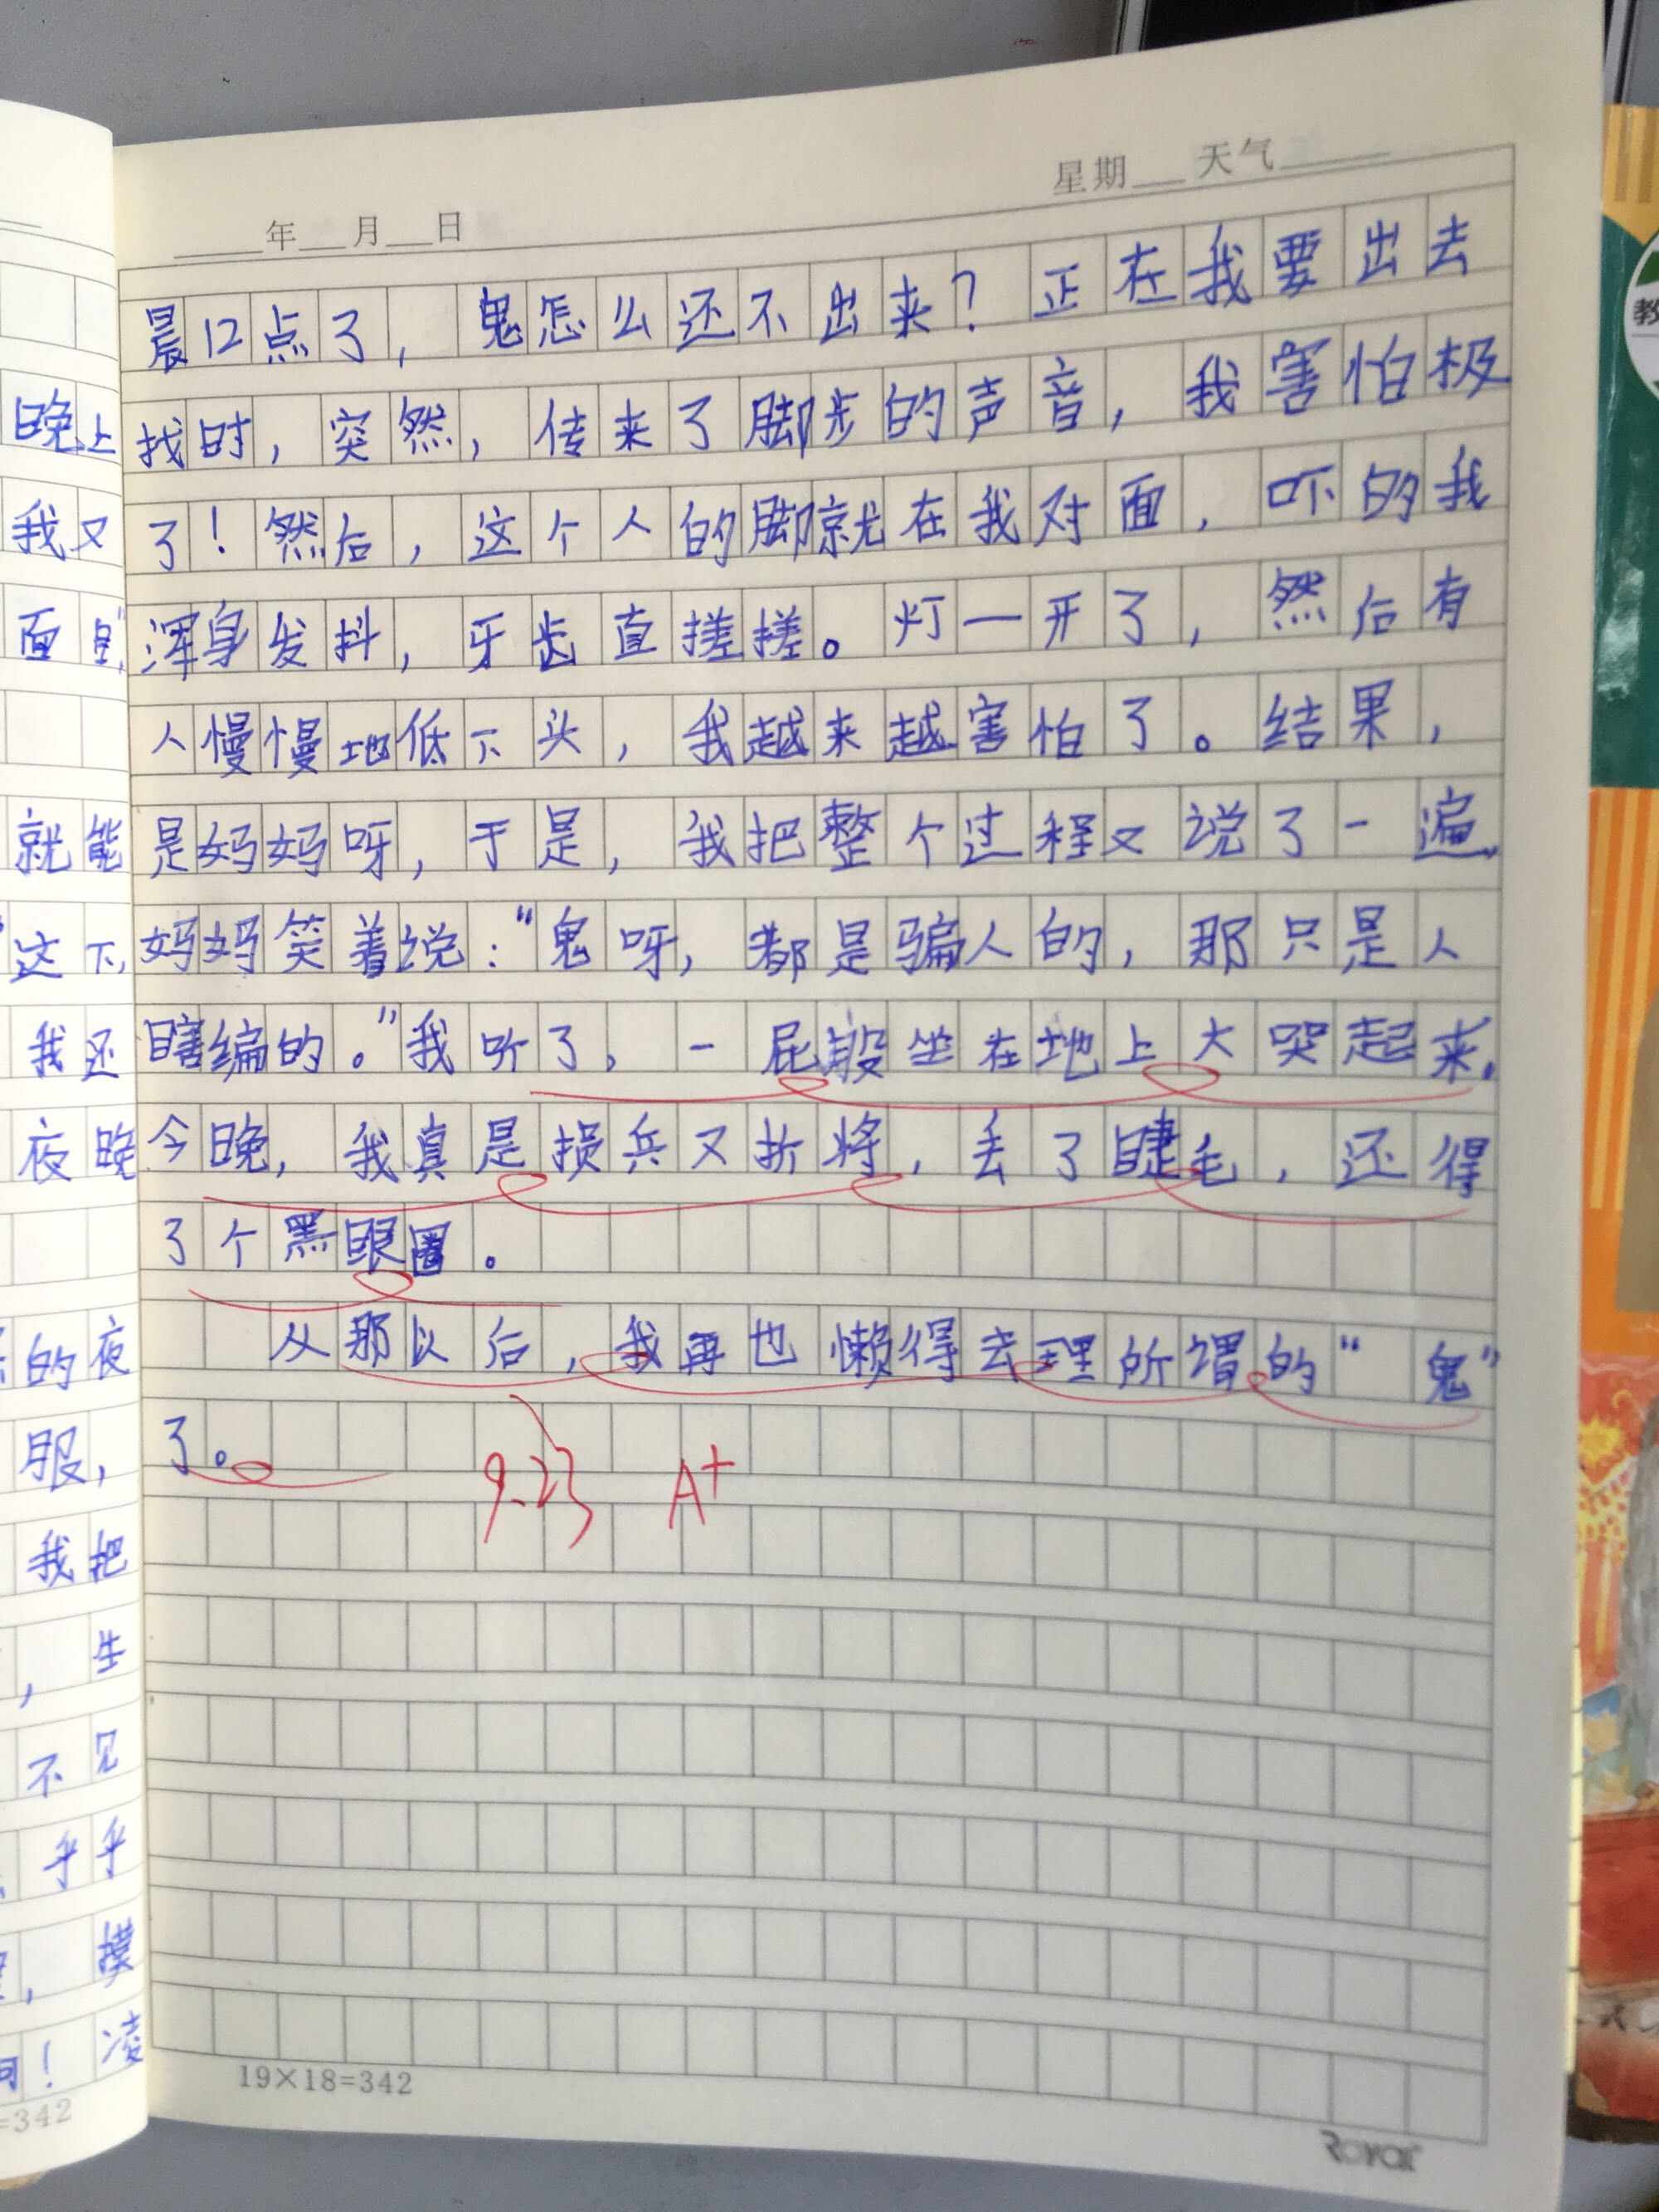 星期 天气
年 月 日
晨12点了，鬼怎么还不出来？正在我要出去
找时，突然，传来了脚步的声音，我害怕极
了！然后，这个人的脚就在我对面，吓的我
浑身发抖，牙齿直搓搓。灯一开了，然后有
人慢慢地低下头，我越来越害怕了。结果，
是妈妈呀，于是，我把整个过程又说了一遍，
妈妈笑着说：“鬼呀，都是骗人的，那只是人
瞎编的。”我听了，一屁股坐在地上大哭起来。
今晚，我真是损兵又折将，丢了睫毛，还得
了个黑眼圈。
从那以后，我再也懒得去理所谓的“鬼”
了。
9.23 A+
19×18=342
Royal
晚上
我又
面
就能
这下，
我还
夜晚
的夜
服，
我把
，生
不见
乎乎
，模
！凌
=342
教